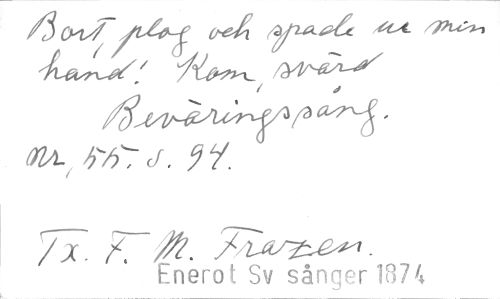 Bort, plog och spade ur min
hand! Kom, svärd
Beväringssång.
Nr, 55. s. 94.
Tx. F. M. Franzen.
Enerot Sv sånger 1874